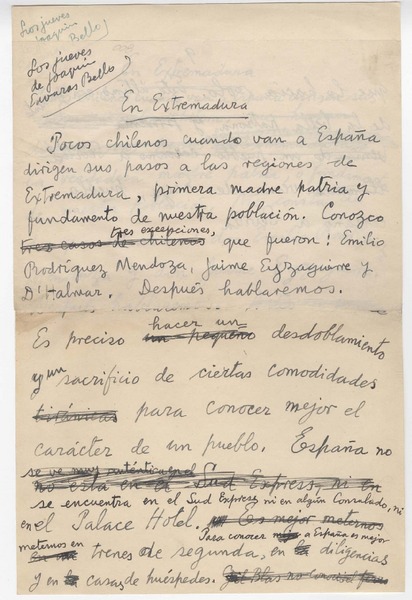 Los jueves
Joaquín
Bello)
Los jueves
de Joaquín
Edwards Bello)
En Extremadura
Pocos chilenos cuando van a España
dirigen sus pasos a las regiones de
Extremadura, primera madre patria y
fundamento de nuestra población. Conozco
tres excepciones,
tres casos de chilenos que fueron: Emilio
Rodríguez Mendoza, Jaime Eyzaguirre y
D'Halmar. Después hablaremos.
hacer un
Es preciso un pequeño desdoblamiento
y un sacrificio de ciertas comodidades
para conocer mejor el
carácter de un pueblo. España no
se ve muy auténtica en el
no esta en el Sud Express, ni en
se encuentra en el Sud Express, ni en algún Consulado, ni
en el Palace Hotel. Es mejor meternos
Para conocer a España es mejor
meternos en trenes de segunda, en diligencias
y en casas de huéspedes. Gil Blas no conoció